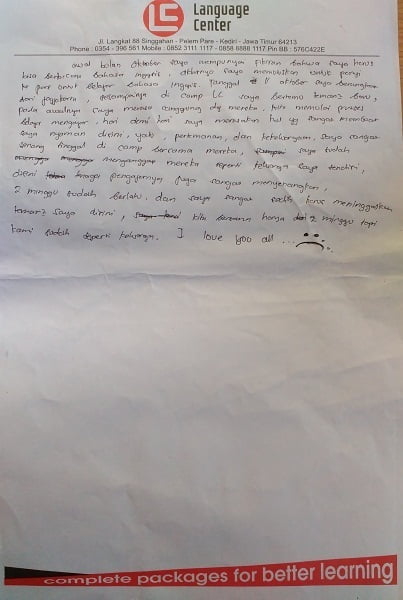 LC Language
Center
Jl. Langkat 88 Singgahan - Pelem Pare - Kediri - Jawa Timur 64213
Phone : 0354 - 396 561 Mobile : 0852 3111 1117 - 0858 8888 1117 Pin BB : 576C422E
awal bulan Oktober saya mempunyai fikiran bahwa saya harus
bisa berbicara bahasa inggris, akhirnya saya memutuskan untuk pergi
ke pare untuk belajar bahasa inggris. Tanggal 11 oktober saya berangkat
dari jogjakarta, sesampainya di camp LC saya bertemu teman2 baru,
pada awalnya saya merasa canggung dg mereka, kita memulai proses
belajar mengajar. hari demi hari saya merasakan hal yg sangat membuat
saya nyaman disini, yaitu pertemanan, dan kekeluargaan. Saya sangat
senang tinggal di camp bersama mereka, saya sudah
menganggap mereka seperti keluarga saya sendiri,
disini pengajarnya juga sangat menyenangkan,
2 minggu sudah berlalu, dan saya sangat sedih harus meninggalkan
teman2 saya disini, kita bersama hanya 2 minggu tapi
kami sudah seperti keluarga. I love you all ...
complete packages for better learning